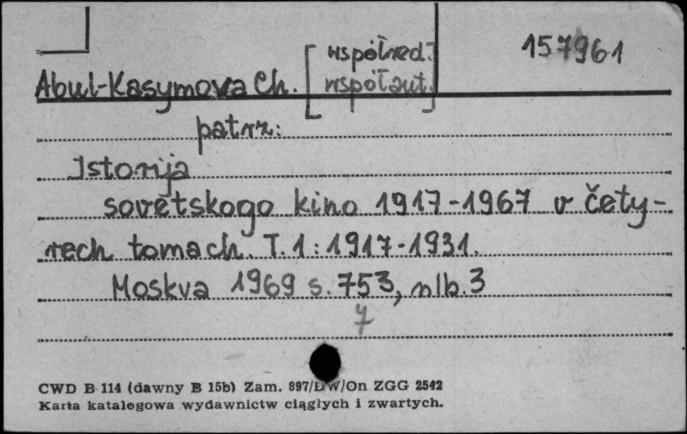 157961
Abul-Kasymova Ch. [współred.
współaut.]
patrz:
Istorija
sovetskogo kino 1917-1967 v čety-
rech tomach. T.1: 1917-1931.
Moskva 1969 s. 753, nlb. 3
7
CWD B 114 (dawny B 15b) Zam. 897/DW/On ZGG 2542
Karta katalogowa wydawnictw ciągłych i zwartych.